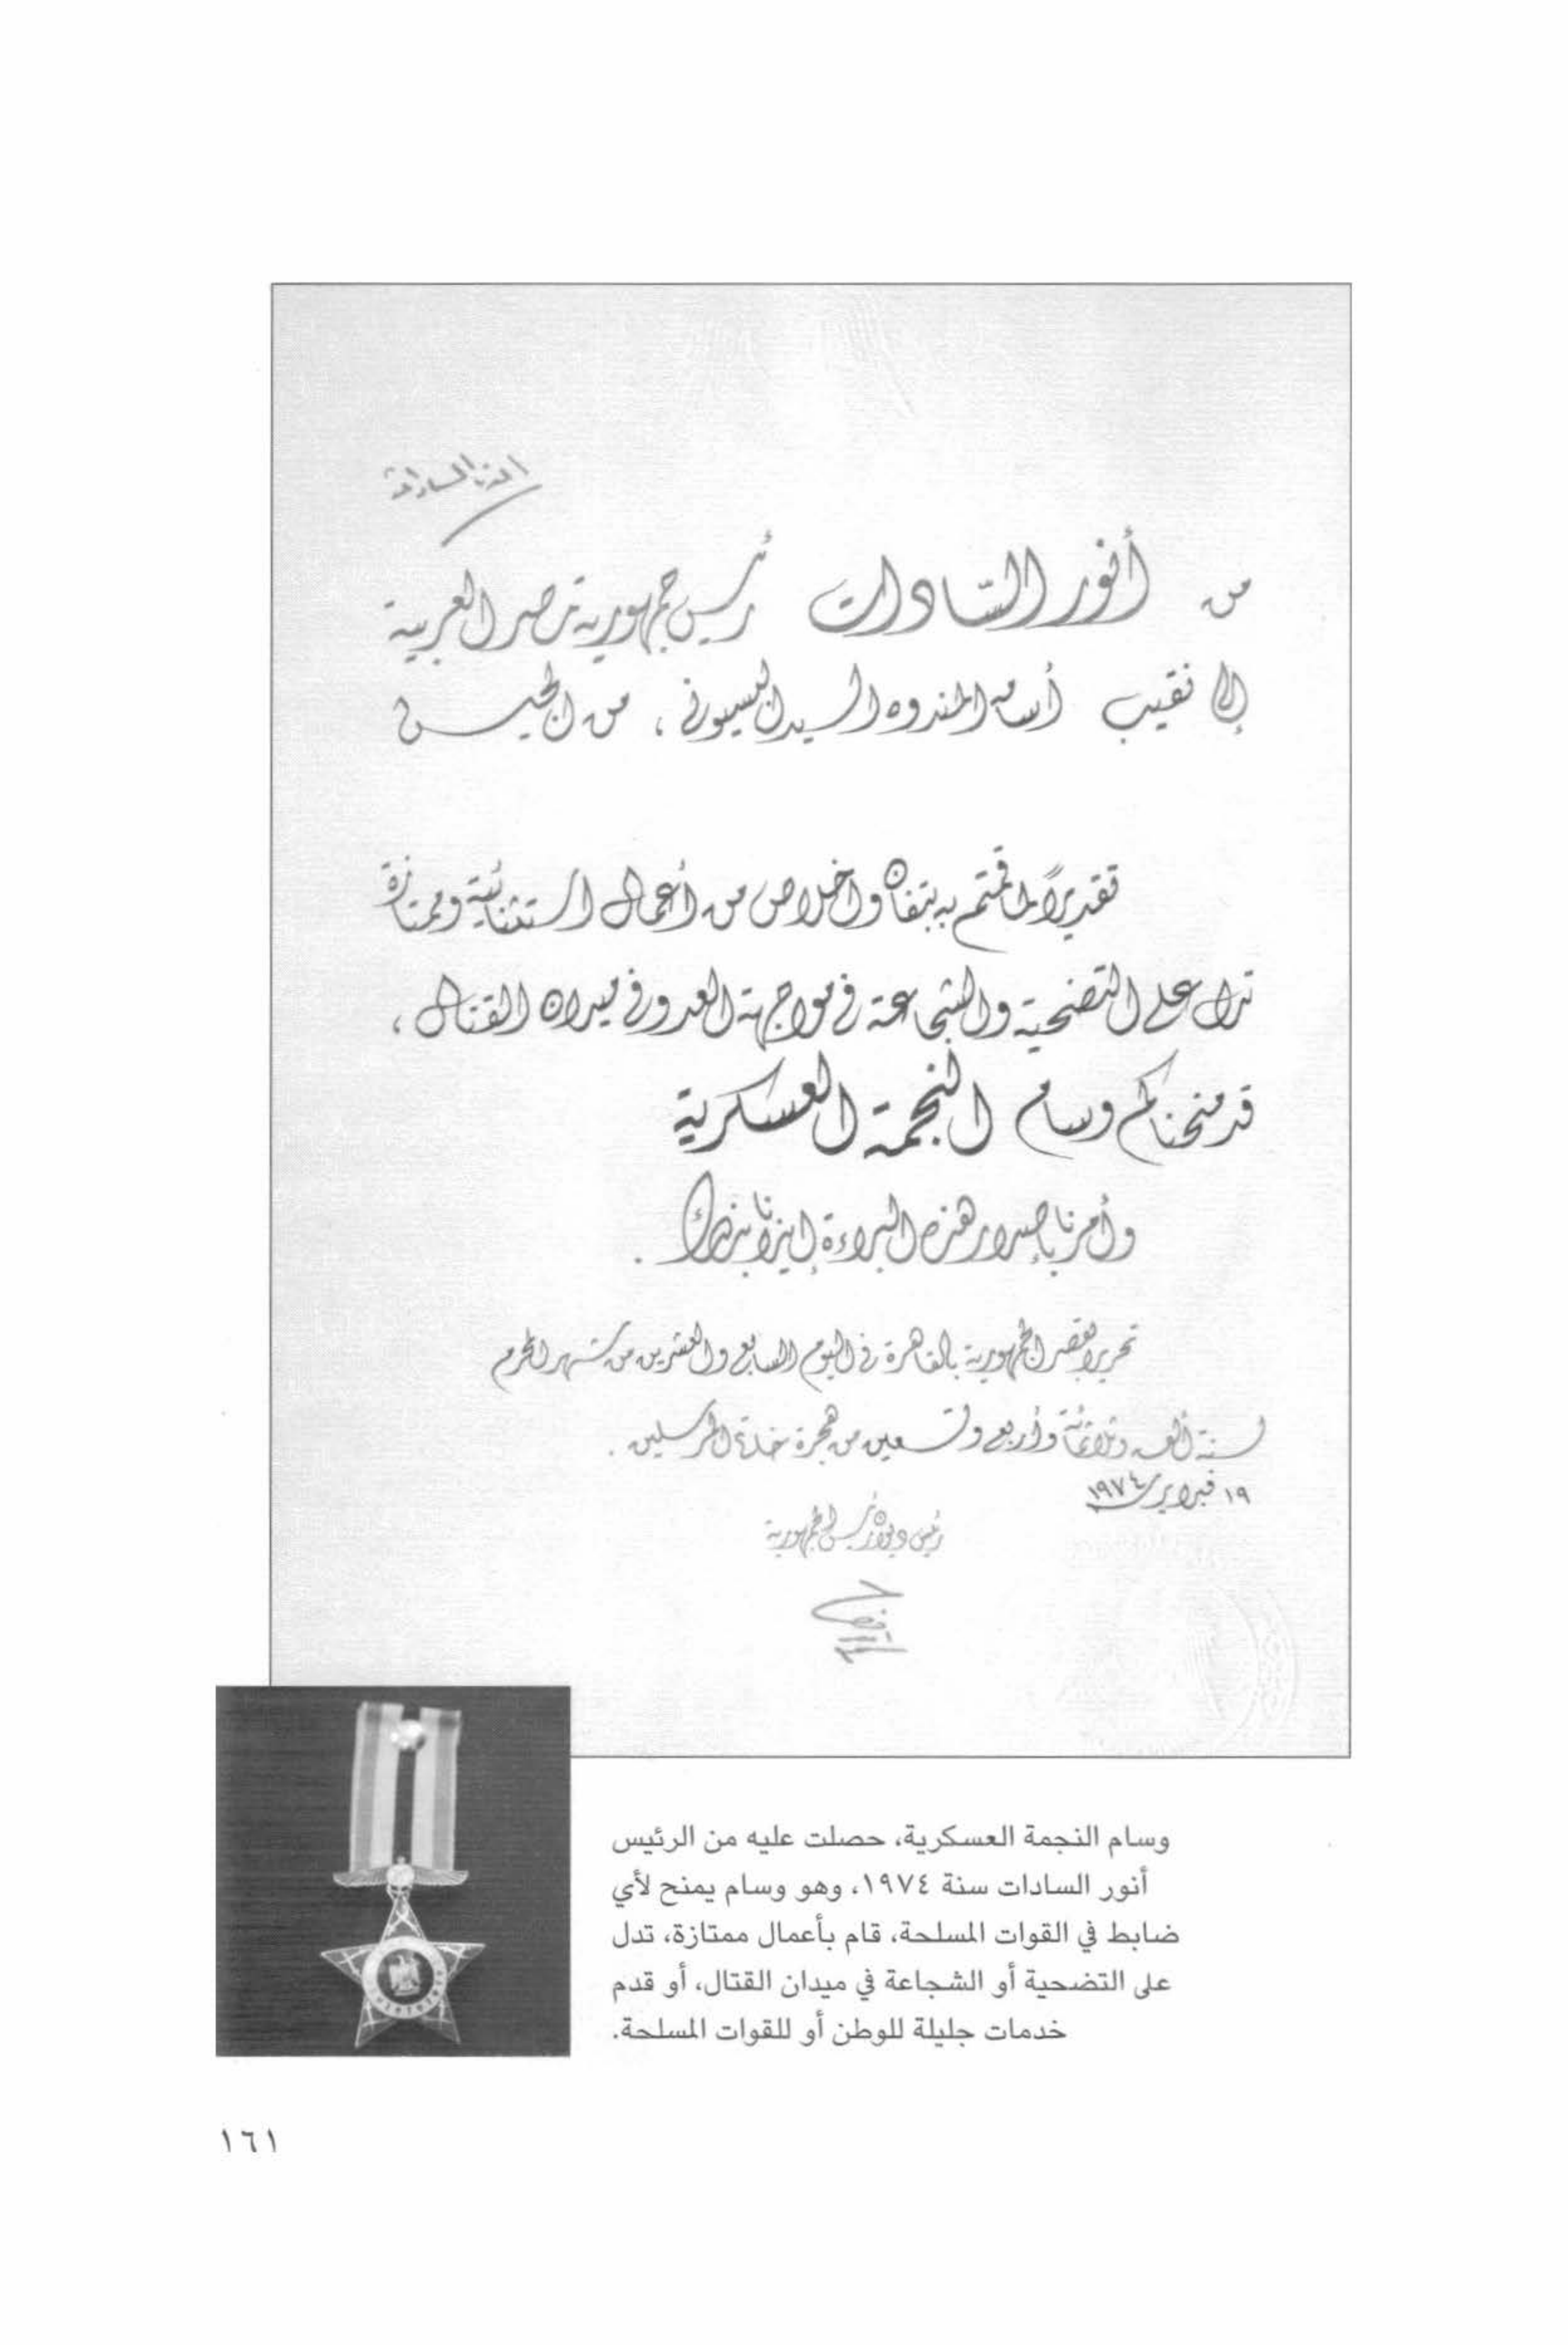 أنور السادات
من أنور السّادات رئيس جمهورية مصر العربية
إلى نقيب أسامه المندوه السيد البسيونى ، من الجيش
تقديرًا لما قمتم به بتفان وإخلاص من أعمال استثنائية وممتازة
تدل على التضحية والشجاعة فى مواجهة العدو وفى ميدان القتال ،
قد منحناكم وسام النجمة العسكرية
وأمرنا بإصدار هذه البراءة إيذانا بذلك .
تحريرا بقصر الجمهورية بالقاهرة فى اليوم السابع والعشرين من شهر المحرم
لسنة ألف وثلاثمائة وأربع وتسعين من هجرة خاتم المرسلين .
١٩ فبراير ١٩٧٤
رئيس ديوان رئيس الجمهورية
وسام النجمة العسكرية، حصلت عليه من الرئيس
أنور السادات سنة ١٩٧٤، وهو وسام يمنح لأي
ضابط في القوات المسلحة، قام بأعمال ممتازة، تدل
على التضحية أو الشجاعة في ميدان القتال، أو قدم
خدمات جليلة للوطن أو للقوات المسلحة.
١٦١